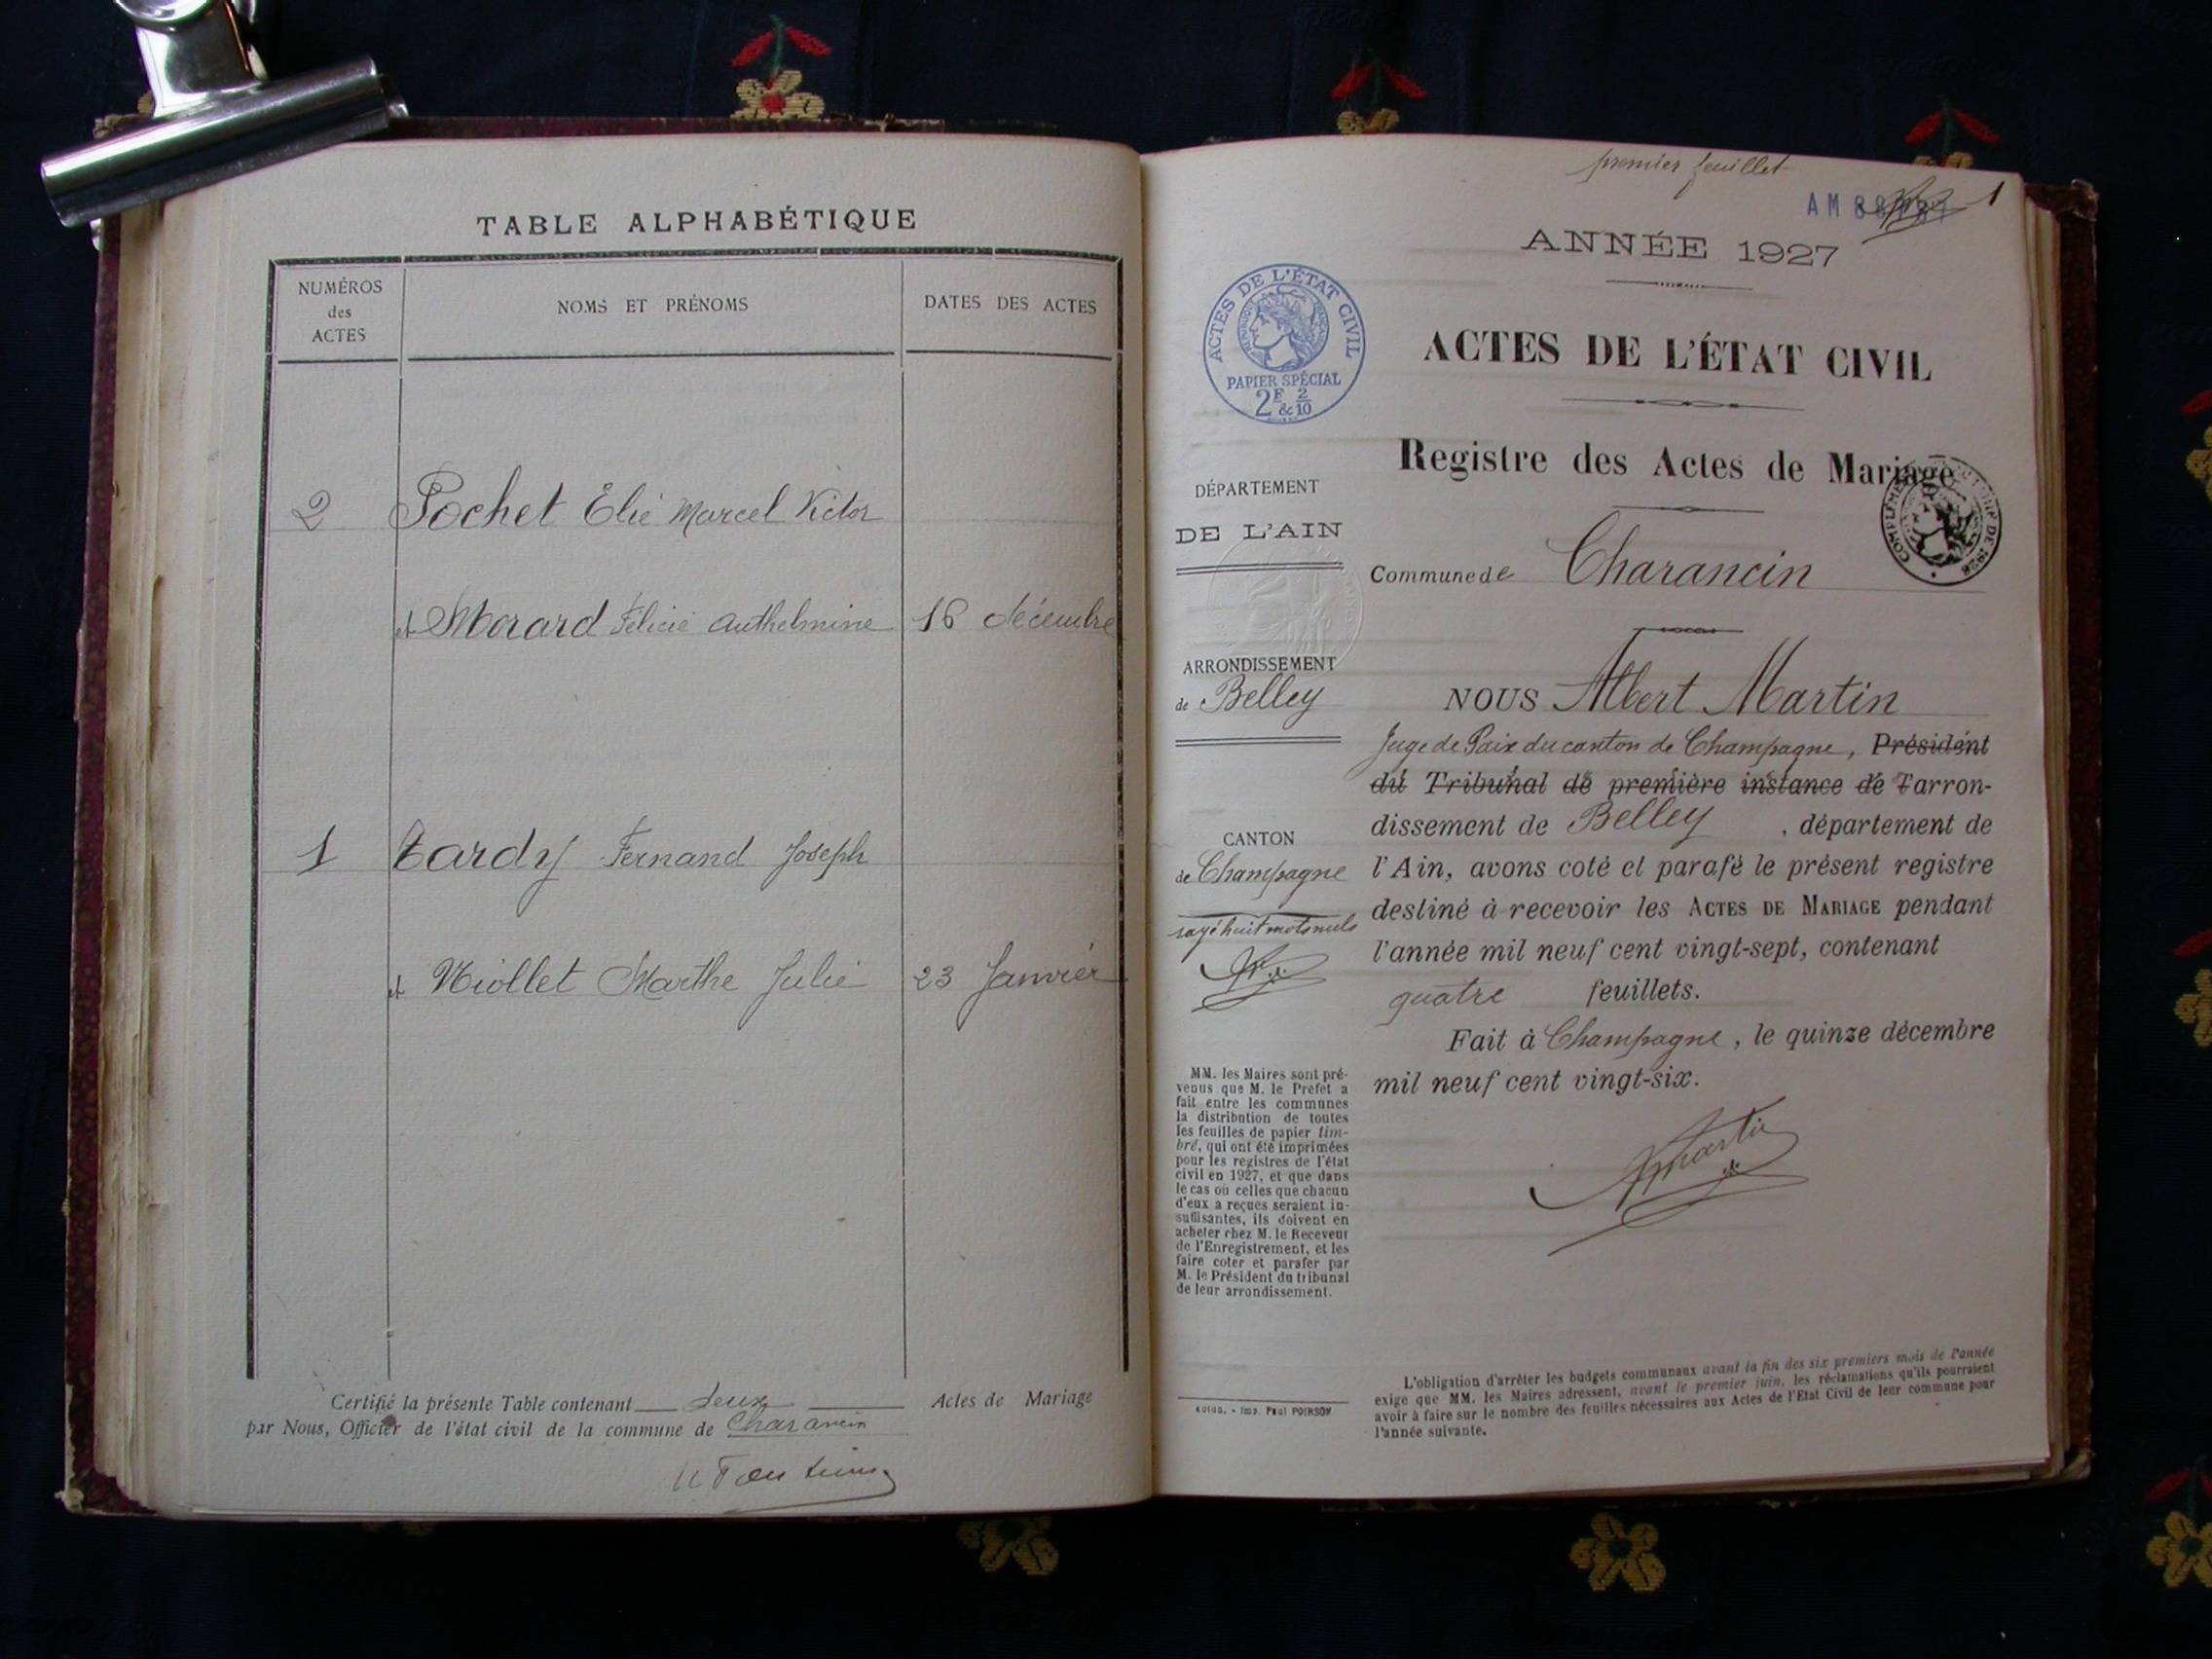 TABLE ALPHABÉTIQUE
NUMÉROS
des
ACTES
NOMS ET PRÉNOMS
DATES DES ACTES
2 Pochet Élie Marcel Victor
et Morard Félicie Anthelmine 16 décembre
1 Tardy Fernand Joseph
et Miollet Marthe Julie 23 Janvier
Certifié la présente Table contenant deux Actes de Mariage
par Nous, Officier de l'état civil de la commune de Charancin
premier feuillet
1
ANNÉE 1927
ACTES DE L'ÉTAT CIVIL
RÉPUBLIQUE FRANÇAISE
PAPIER SPÉCIAL
2F & 2/10
ACTES DE L'ÉTAT CIVIL
Registre des Actes de Mariage
DÉPARTEMENT
DE L'AIN
Commune de Charancin
ARRONDISSEMENT
de Belley
CANTON
de Champagne
rayé huit mots nuls
NOUS Albert Martin
Juge de Paix du canton de Champagne, Président
du Tribunal de première instance de l'arron-
dissement de Belley, département de
l'Ain, avons coté et parafé le présent registre
destiné à recevoir les ACTES DE MARIAGE pendant
l'année mil neuf cent vingt-sept, contenant
quatre feuillets.
Fait à Champagne, le quinze décembre
mil neuf cent vingt-six.
AMartin
MM. les Maires sont pré-
venus que M. le Préfet a
fait entre les communes
la distribution de toutes
les feuilles de papier tim-
bré, qui ont été imprimées
pour les registres de l'état
civil en 1927, et que dans
le cas où celles que chacun
d'eux a reçues seraient in-
suffisantes, ils doivent en
acheter chez M. le Receveur
de l'Enregistrement, et les
faire coter et parafer par
M. le Président du tribunal
de leur arrondissement.
Imp. Paul POIRSON
L'obligation d'arrêter les budgets communaux avant la fin des six premiers mois de l'année
exige que MM. les Maires adressent, avant le premier juin, les réclamations qu'ils pourraient
avoir à faire sur le nombre des feuilles nécessaires aux Actes de l'Etat Civil de leur commune pour
l'année suivante.